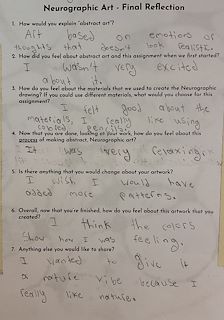 Neurographic Art - Final Reflection
1. How would you explain "abstract art"?
Art based on emotions or
thoughts that doesn't look realistic.
2. How did you feel about abstract art and this assignment when we first started?
I wasn't very excited
about it.
3. How do you feel about the materials that we used to create the Neurographic
drawing? If you could use different materials, what would you choose for this
assignment?
I felt good about the
materials, I really like using
colored pencils.
4. Now that you are done, looking at your work, how do you feel about this
process of making abstract, Neurographic art?
It was very relaxing.
5. Is there anything that you would change about your artwork?
I wish I would have
added more patterns.
6. Overall, now that you're finished, how do you feel about this artwork that you
created?
I think the colors
show how I was feeling.
7. Anything else you would like to share?
I wanted to give it
a nature vibe because I
really like nature.